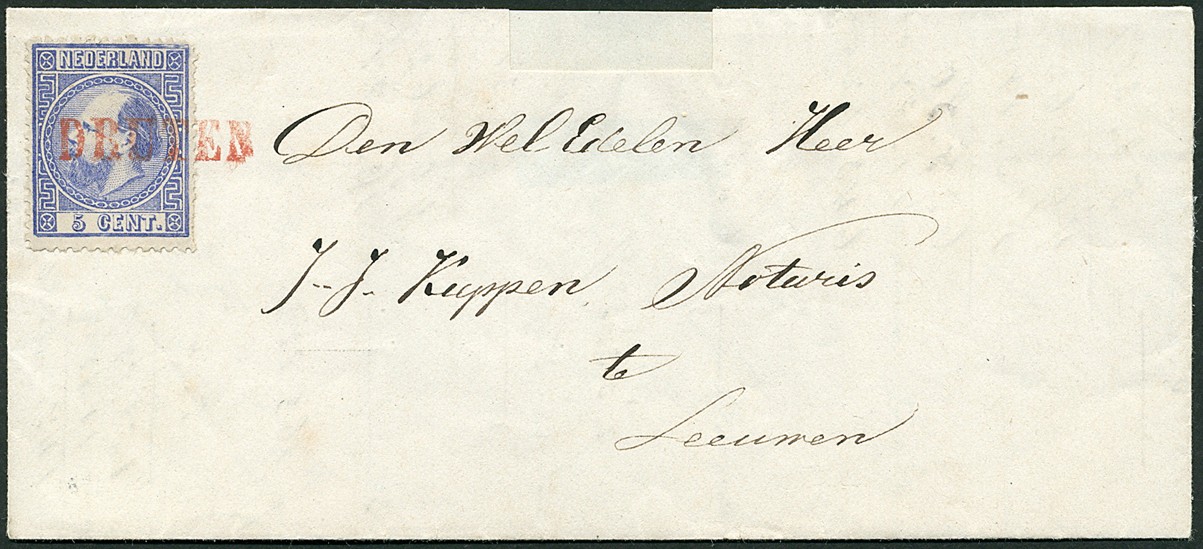 NEDERLAND
DRUTEN
5 CENT.
Den Wel Edelen Heer
J. J. Kuppen Notaris
te
Leeuwen